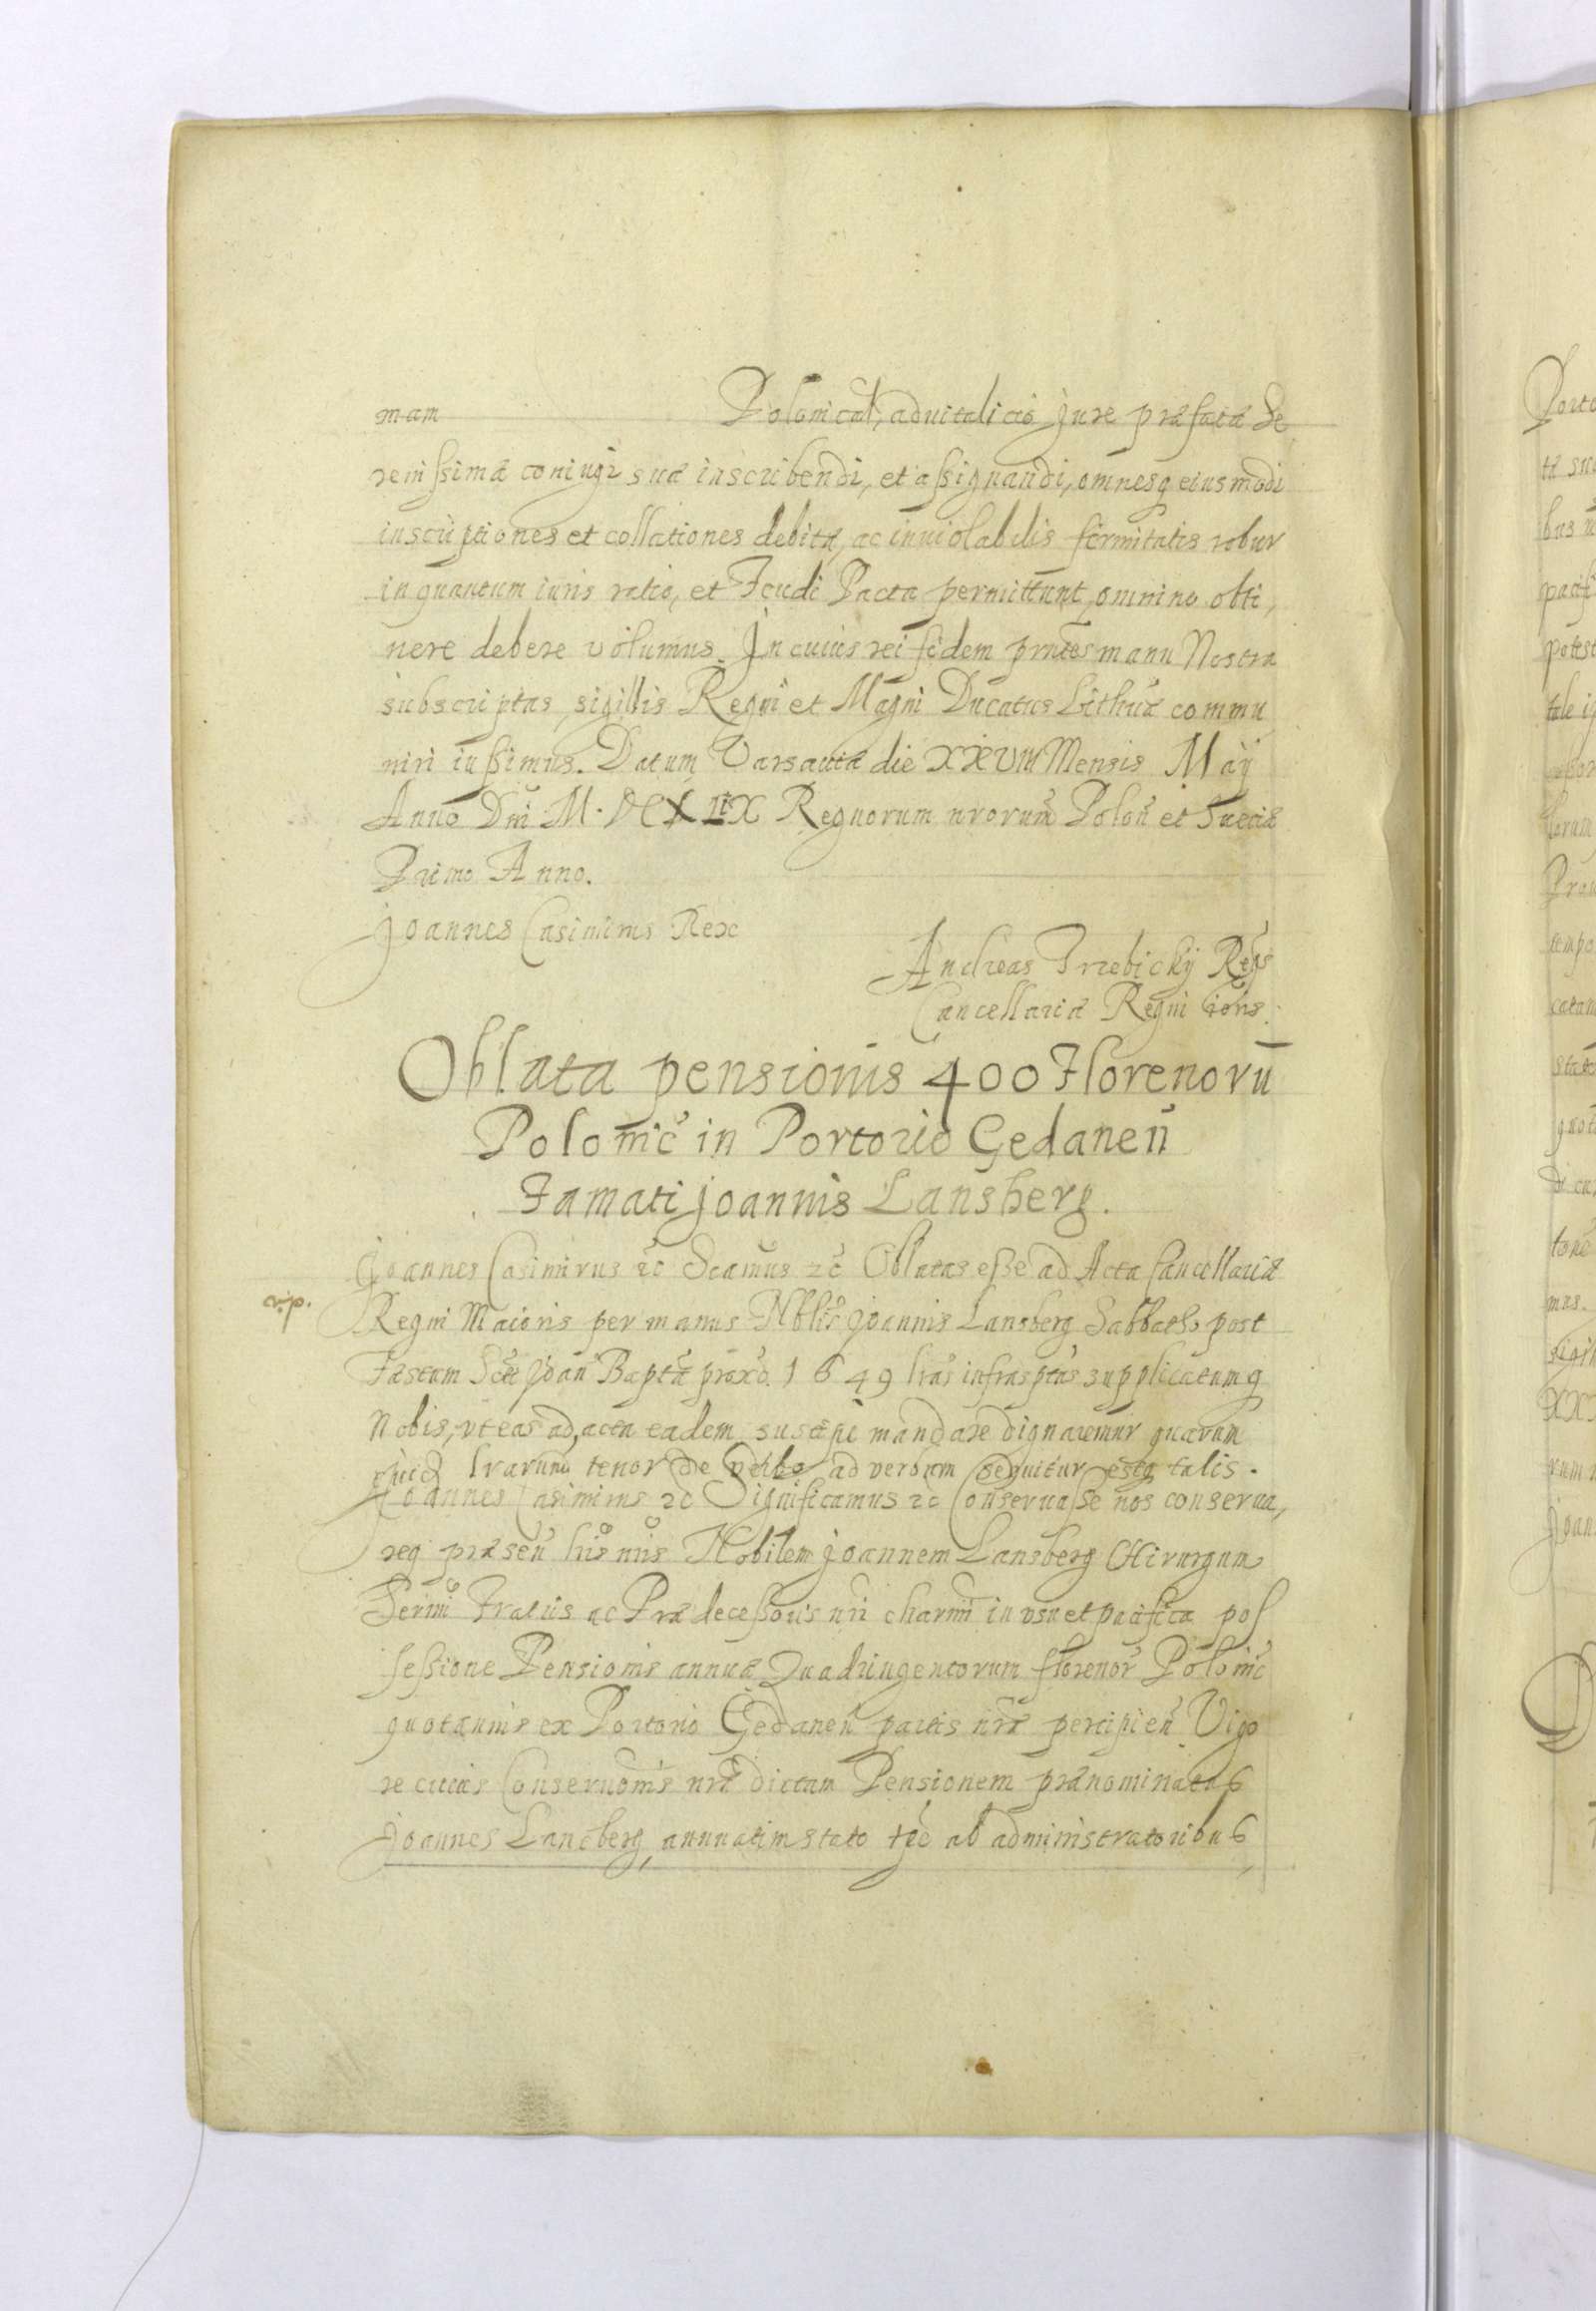 mam Polonical, aduitalicio jure præfatæ Se
renissimæ coniugi suæ inscribendi, et assignandi, omnesq eiusmodi
inscriptiones et collationes debitæ, ac inuiolabilis firmitatis robur
inquantum iuris ratio, et Feudi Pacta permittunt, omnino obti,
nere debere volumus. In cuius rei fidem pрntes manu Nostra
subscriptas, sigillis Regni et Magni Ducatus Lithuæ commu
niri iussimus. Datum Varsauiæ die XXVIII Mensis Maÿ
Anno Dni M. DCXLIX Regnorum nrorum Polon et Sueciæ
Primo Anno.
Joannes Casimirus Rex
Andreas Trzebickÿ Regs
Cancellariæ Regni
Oblata pensionis 400 Florenorū
Polonic in Portorio Gedanen
Famati Joannis Lansberg.
Joannes Casimirus zc Scamus zc Oblatas esse ad Acta Cancellariæ
r.p.
Regni Maioris per manus Nblis Joannis Lansberg Sabbatho post
Festum Scti Joan Baptæ proxo. 1649 lras infrasptas supplicatumq
Nobis, vt eas ad, acta eadem suscipi mandare dignaremur quarum
quid lrarum tenor de verbo ad verbum sequitur estq talis.
Joannes Casimirus zc Significamus zc Conseruasse nos conserua,
req præsen lris nris Nobilem Joannem Lansberg Chirurgum
Sermi Fratris ac Prædecessoris nri charmi in vsu et pacifica pos
sessione Pensionis annuæ Quadringentorum florenor Polonic
quotannis ex Portorio Gedanen partis nræ percipien. Vigo
re cuius Conseruaonis nræ dictam Pensionem prænominatus
Joannes Lansberg, annuatim stato tpe ab administratoribus